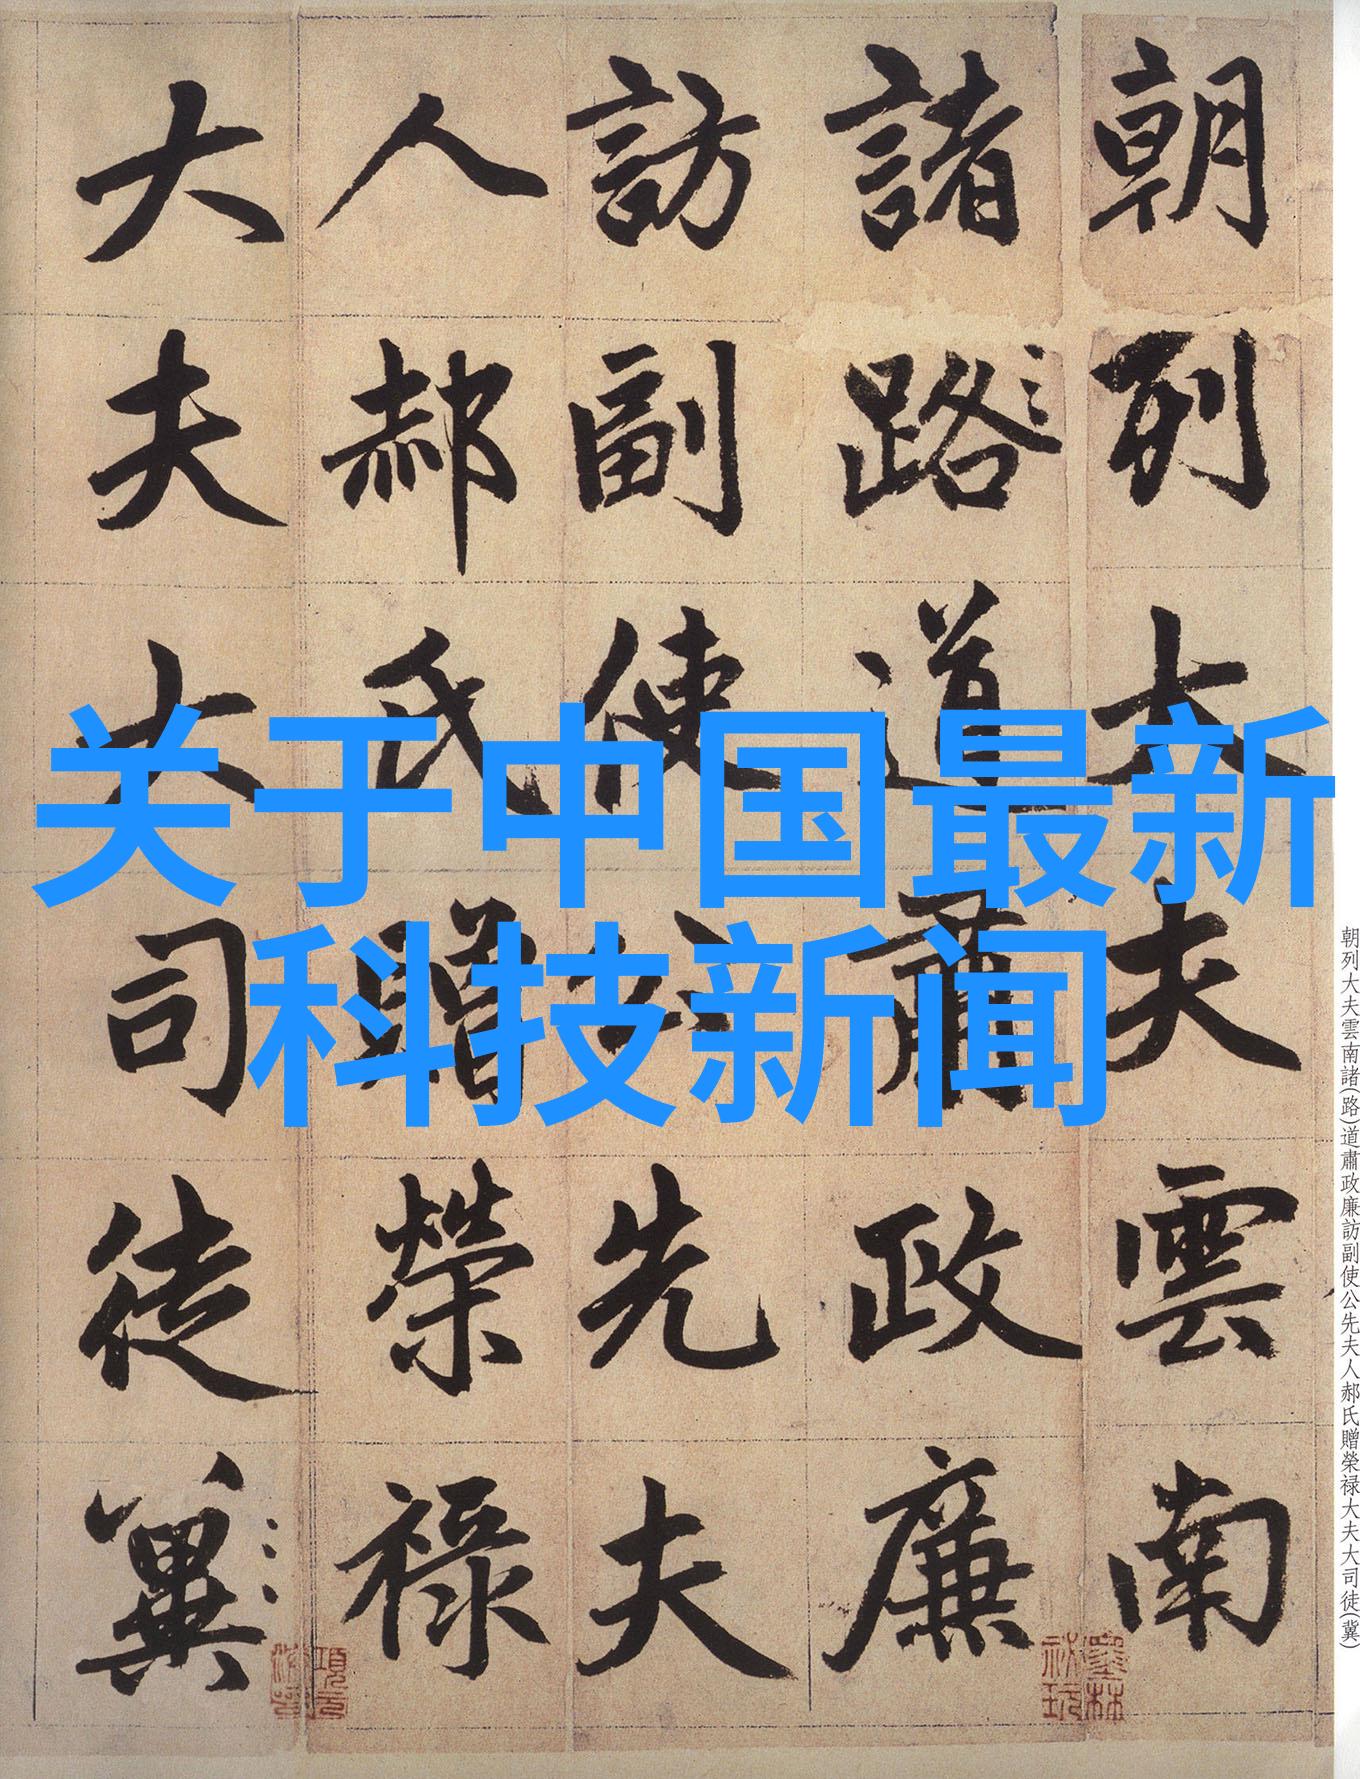 关于中国最新
科技新闻
朝列大夫雲南
諸路道肅政廉
訪副使公先夫
人郝氏贈榮祿
大夫大司徒冀
朝列大夫雲南諸(路)道肅政廉訪副使公先夫人郝氏贈榮禄大夫大司徒(冀)